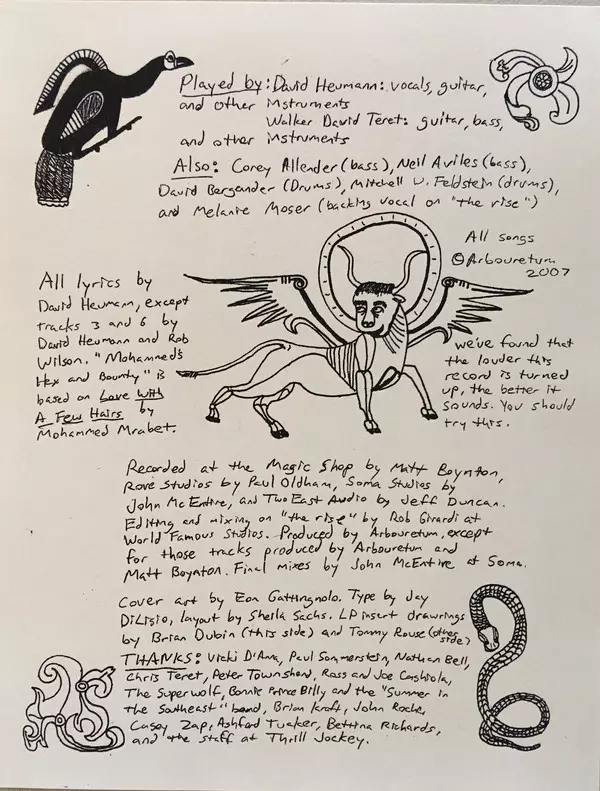 Played by: David Heumann: vocals, guitar,
and other instruments
Walker David Teret: guitar, bass,
and other instruments
Also: Corey Allender (bass), Neil Aviles (bass),
David Bergander (Drums), Mitchell W. Feldstein (drums),
and Melanie Moser (backing vocal on "the rise")
All songs
©Arbouretum
2007
All lyrics by
David Heumann, except
tracks 3 and 6 by
David Heumann and Rob
Wilson. "Mohammed's
Hex and Bounty" is
based on Love With
A Few Hairs by
Mohammed Mrabet.
we've found that
the louder this
record is turned
up, the better it
sounds. You should
try this.
Recorded at the Magic Shop by Matt Boynton,
Rove Studios by Paul Oldham, Soma Studios by
John McEntire, and Two East Audio by Jeff Duncan.
Editing and mixing on "the rise" by Rob Girardi at
World Famous Studios. Produced by Arbouretum, except
for those tracks produced by Arbouretum and
Matt Boynton. Final mixes by John McEntire at Soma.
Cover art by Eon Gattingnolo. Type by Jay
DiLisio, layout by Sheila Sachs. LP insert drawings
by Brian Dubin (this side) and Tommy Rouse (other side)
THANKS: Vicki D'Ama, Paul Sommerstein, Nathan Bell,
Chris Teret, Peter Townshend, Ross and Joe Cashiola,
The Superwolf, Bonnie Prince Billy and the "Summer in
the Southeast" band, Brian Kraft, John Roche,
Casey Zap, Ashford Tucker, Bettina Richards,
and the staff at Thrill Jockey.